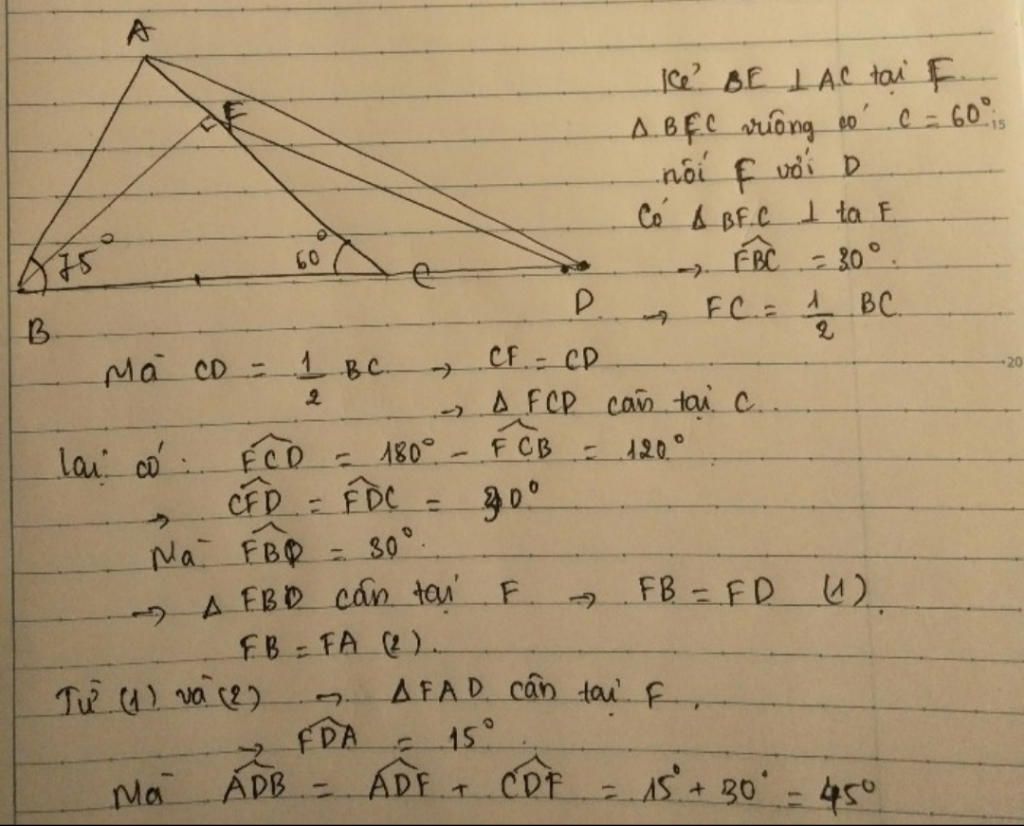 A
E
75°
60°
B
C
D
Kẻ BE ⊥ AC tại F.
Δ BFC vuông có C = 60°
nối F với D
Có Δ BFC ⊥ ta F
→ FBC = 30°.
→ FC = 1/2 BC
Mà CD = 1/2 BC → CF = CD
→ Δ FCD cân tại C.
lại có: FCD = 180° - FCB = 120°
→ CFD = FDC = 30°
Mà FBD = 30°.
→ Δ FBD cân tại F → FB = FD (1)
FB = FA (2).
Từ (1) và (2) → ΔFAD cân tại F.
→ FDA = 15°.
Mà ADB = ADF + CDF = 15° + 30° = 45°
15
20